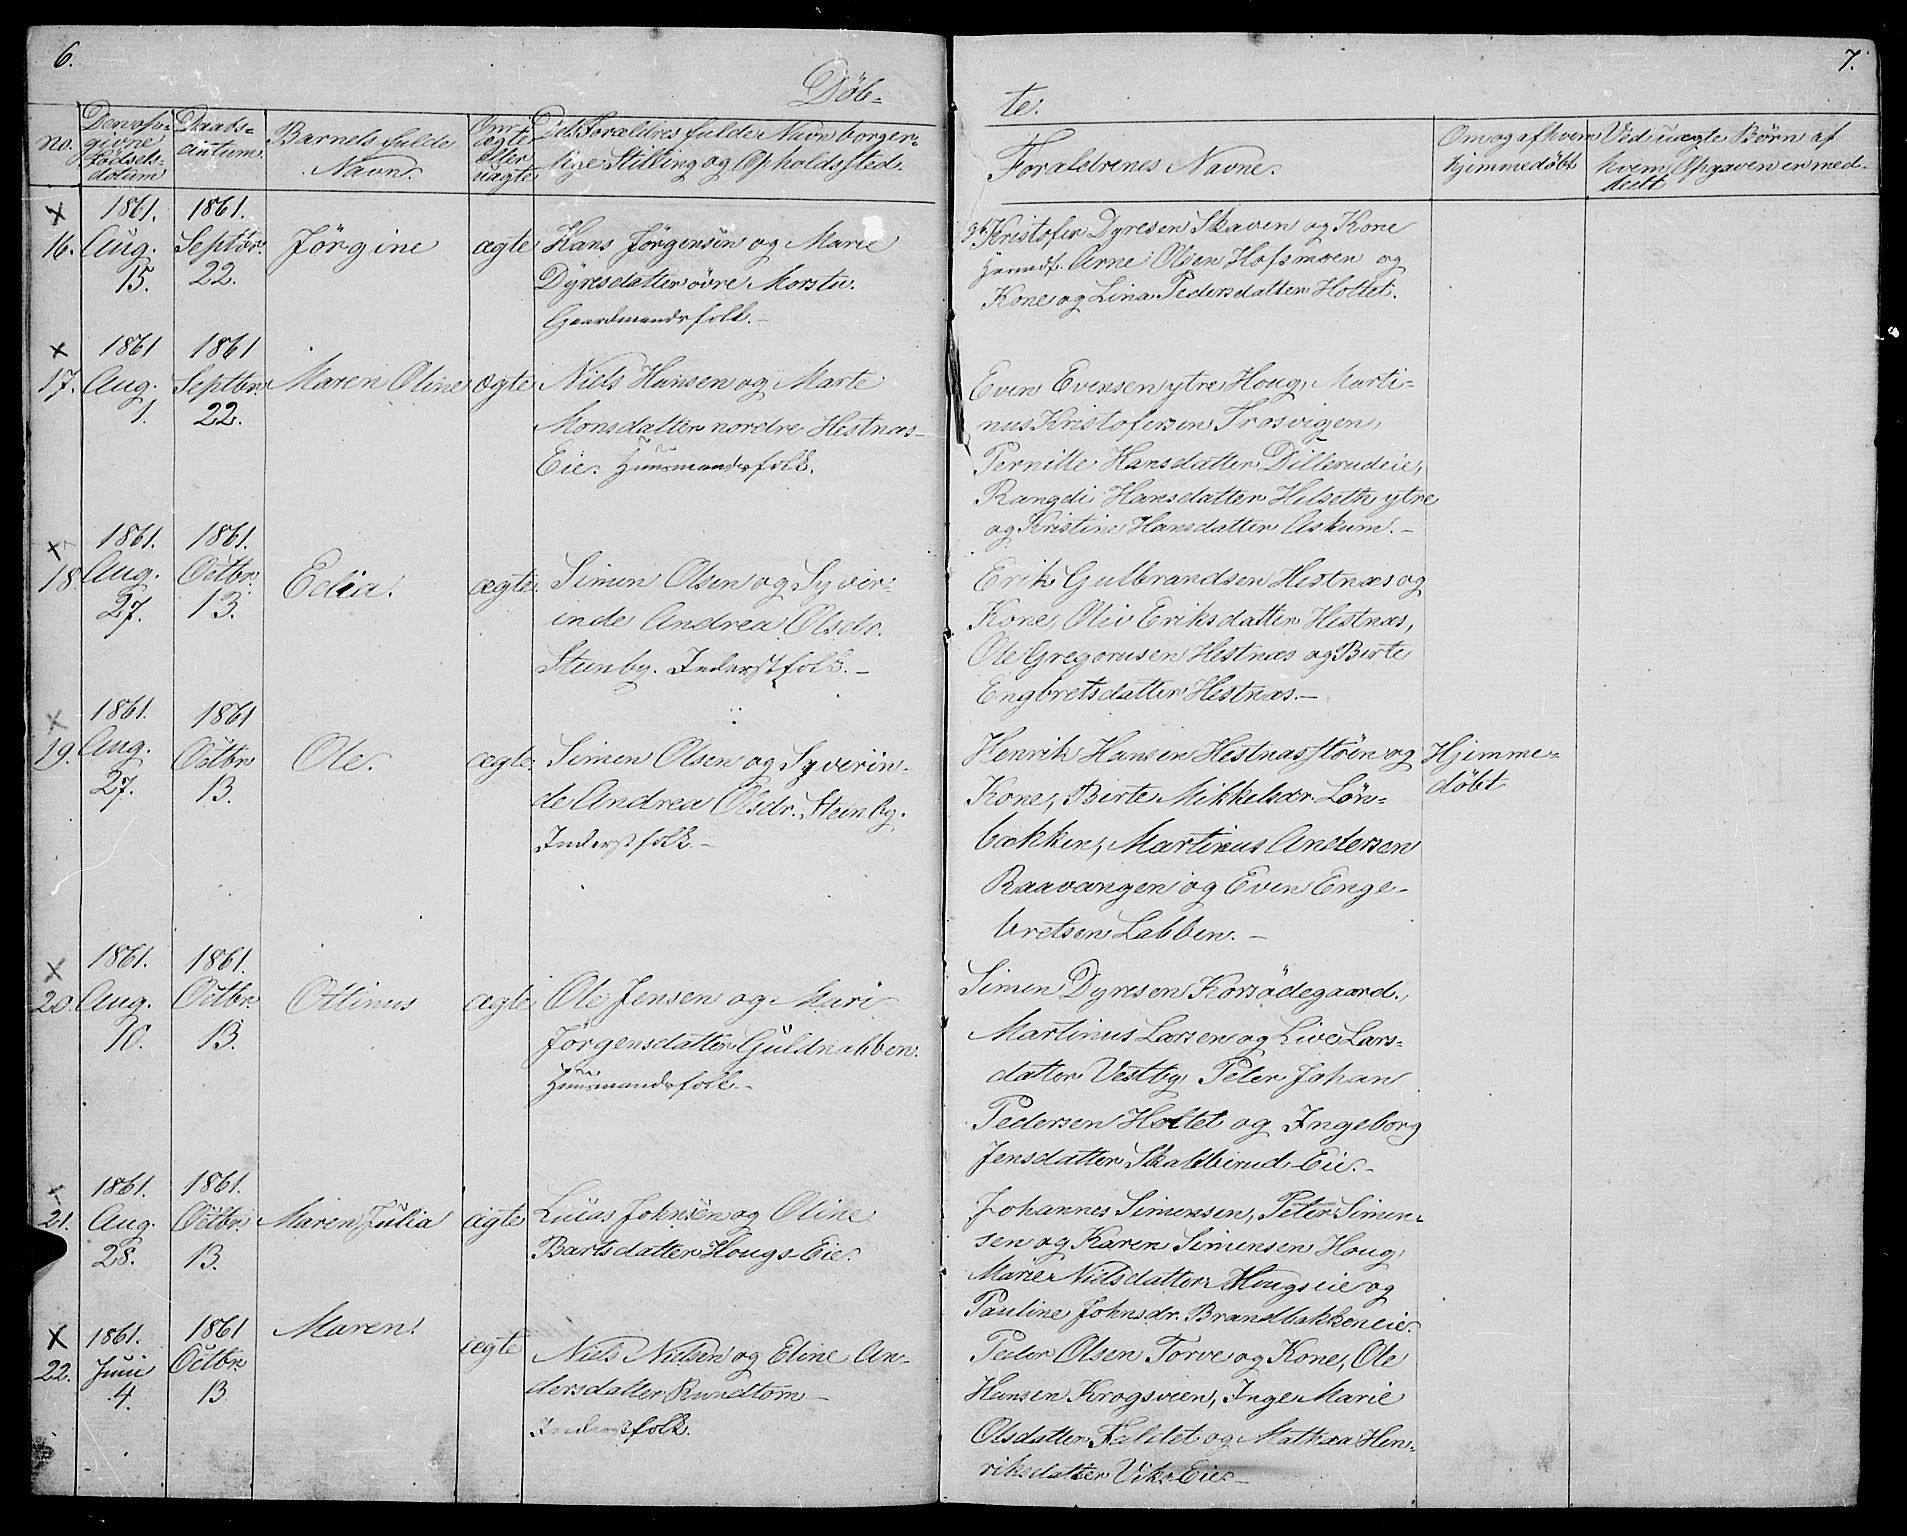 6.
7.
Døb-
te.
No.
Den opgivne Fødselsdatum
Daabsdatum
Barnets fulde Navn.
Om ægte eller uægte
Dets Forældres fulde Navn borger-
lige Stilling og Opholdssted.
Forældrenes Navne.
Om og af hvem hjimmedøbt
Ved uægte Børn af
hvem Opgaven er med-
deelt
16.
1861. Aug. 15.
1861. Septbr. 22.
Jørgine
ægte
Hans Jørgensen og Marie
Dyresdatter øvre Morstu.
Gaardmandsfolk.
Kristofer Dyresen Skaven og Kone
Arne Olsen Hofsmoen og
Kone og Lina Pedersdatter Holtet.
17.
1861 Aug. 1.
1861 Septbr. 22.
Maren Oline
ægte
Niels Hansen og Marte
Monsdatter nordre Hestnæs-
Eie. Huusmandsfolk.
Even Evensen ytre Houg, Marti-
nus Kristofersen Trosvigen,
Pernille Hansdatter Dillerudeie,
Rangdi Hansdatter Helseth ytre
og Kristine Hansdatter Askum.-
18
1861. Aug. 27.
1861. Octbr. 13.
Edia.
ægte.
Simen Olsen og Syver-
inde Andrea Olsdr.
Steenby. Inderstfolk.-
Erik Gulbrandsen Hestnæs og
Kone, Oliv Eriksdatter Hestnæs,
Ole Gregorusen Hestnæs og Birte
Engbretsdatter Hestnæs.-
19.
1861. Aug. 27.
1861 Octbr. 13.
Ole.
ægte.
Simen Olsen og Syverin-
de Andrea Olsdr. Steenby.
Inderstfolk.-
Henrik Hansen Hestnæsstøen og
Kone, Birte Mikkelsdr. Løn-
bækken, Martinus Andersen
Raavangen og Even Enge-
bretsen Labben.-
Hjimme-
døbt
20.
1861. Aug. 10.
1861. Octbr. 13.
Ottinus
ægte
Ole Jensen og Mari
Jørgensdatter Guldnabben.
Huusmandsfolk.-
Simen Dyresen Korsødegaard.,
Martinus Larsen og Live Lars-
datter Vestby, Peter Johan
Pedersen Holtet og Ingeborg
Jensdatter Skabberud-Eie.-
21.
1861. Aug. 28.
1861. Octbr. 13.
Maren Julia
ægte
Lucas Johnsen og Oline
Bartsdatter Hougs-Eie.
Johannes Simensen, Peter Simen-
sen og Karen Simensen Houg,
Marie Nielsdatter Hougseie og
Pauline Johnsdr. Brandbakkeneie.
22.
1861. Juni 4.
1861 Octbr. 13
Maren.
ægte
Niels Nielsen og Eline An-
dersdatter Rundtom-
Inderstfolk.
Peder Olsen Torve og Kone, Ole
Hansen Krogsveen, Inge Marie
Olsdatter Faldet og Mathea Hen-
riksdatter Viks Eie.-